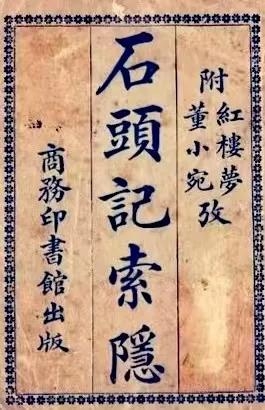 附 紅樓夢
董小宛攷
石頭記索隱
商務印書館出版